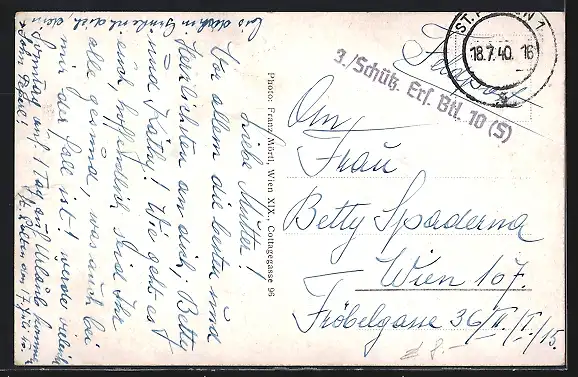 ST. PÖLTEN 1
18.7.40. 16
Feldpost
3./Schütz. Ers. Btl. 10 (S)
An
Frau
Betty Spaderna
Wien 107.
Fröbelgasse 36/II./I./15.
8.–
Photo: Franz Mörtl, Wien XIX., Cottagegasse 96
Liebe Mutter!
Vor allem die besten und
herzlichsten an dich, Betty
und Kathy! Wie geht es
euch hoffentlich seid Ihr
alle gesund, was auch bei
mir der Fall ist! werde
Sonntag auf 1 Tag auf Urlaub kommen
bis dich
dein
Sohn
St. Pölten am 17./7. 40.